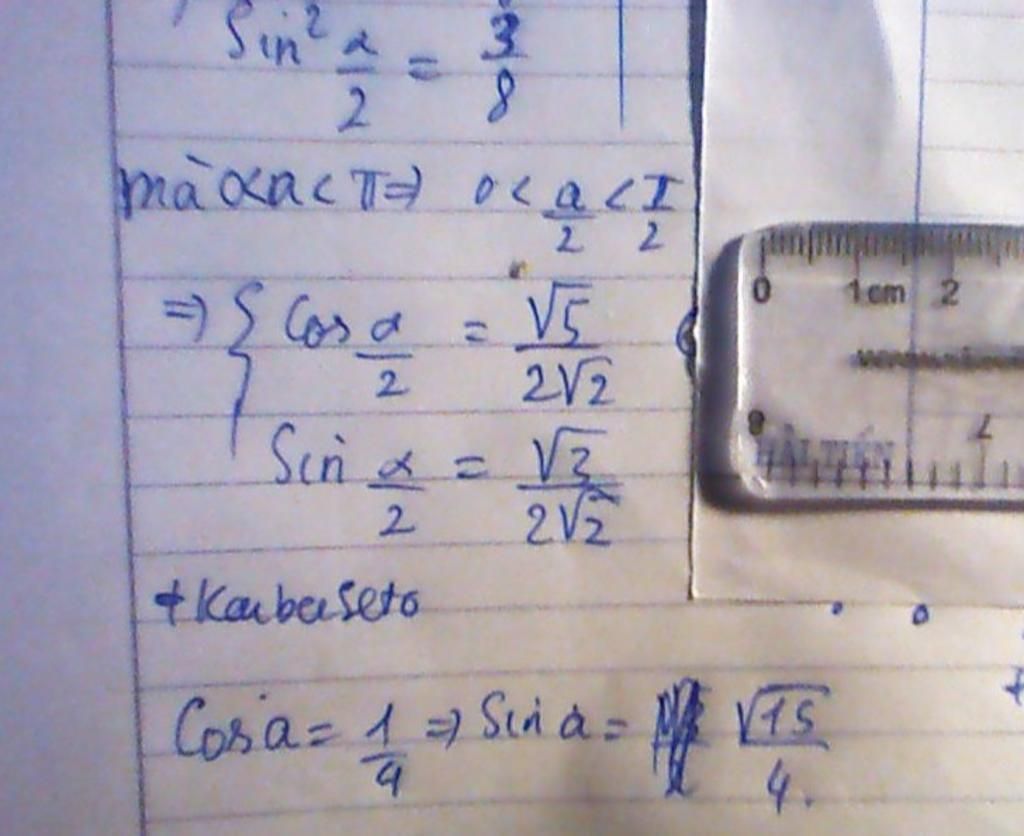 Sin² α/2 = 3/8
mà 0<a < π ⇒ 0 < a/2 < π/2
⇒ { Cos α/2 = √5/2√2
Sin α/2 = √3/2√2
0 1cm 2
8 7
Cos a = 1/4 ⇒ Sin a = √15/4.